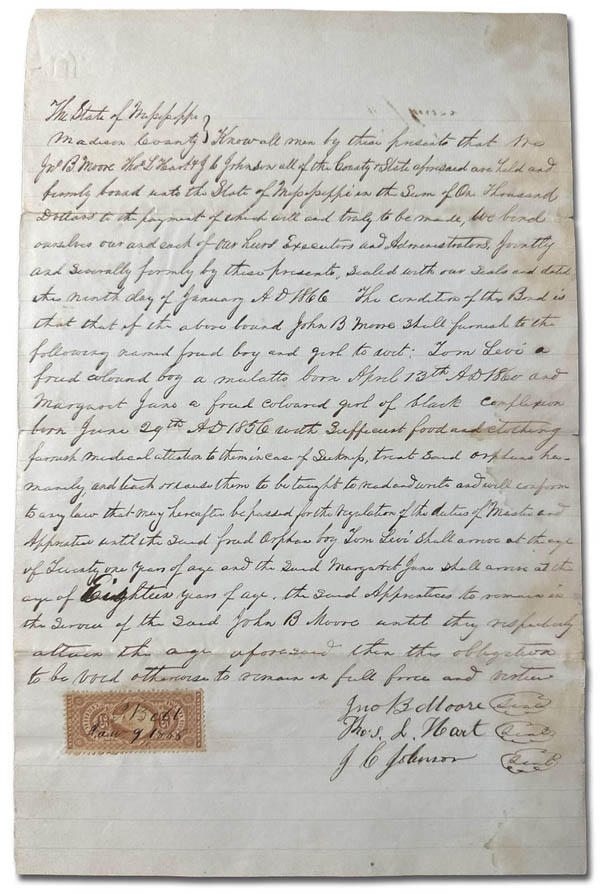 The State of Mississippi
Madison County } Know all men by these presents that We
Jno B Moore Thos L Hart & J C Johnson all of the County & State aforesaid are held and
firmly bound unto the State of Mississippi in the Sum of One Thousand
Dollars to the payment of which well and truly to be made, We bind
ourselves our and each of our heirs Executors and Administrators, Jointly
and Severally firmly by these presents, Sealed with our Seals and dated
this ninth day of January A D 1866 The condition of this Bond is
that that if the above bound John B Moore Shall furnish to the
following named freed boy and girl to wit; Tom Levi a
freed coloured boy a mulatto born April 13th A D 1860 and
Margaret Jane a freed coloured girl of black complexion
born June 29th A D 1856 with Sufficient food and clothing
furnish medical attention to them in case of Sickness, treat Said orphans hu-
manely, and teach or cause them to be taught to read and write and will conform
to any law that may hereafter be passed for the regulation of the duties of Master and
Apprentice until the Said freed Orphan boy Tom Levi Shall arrive at the age
of Twenty one years of age and the Said Margaret Jane Shall arrive at the
age of Eighteen years of age, the Said Apprentices to remain in
the Service of the Said John B Moore until they respectively
attain the age aforesaid then this obligation
to be void otherwise to remain in full force and virtue
Jno B Moore Seal
Thos. L. Hart Seal
J C Johnson Seal
Jan 9 1866